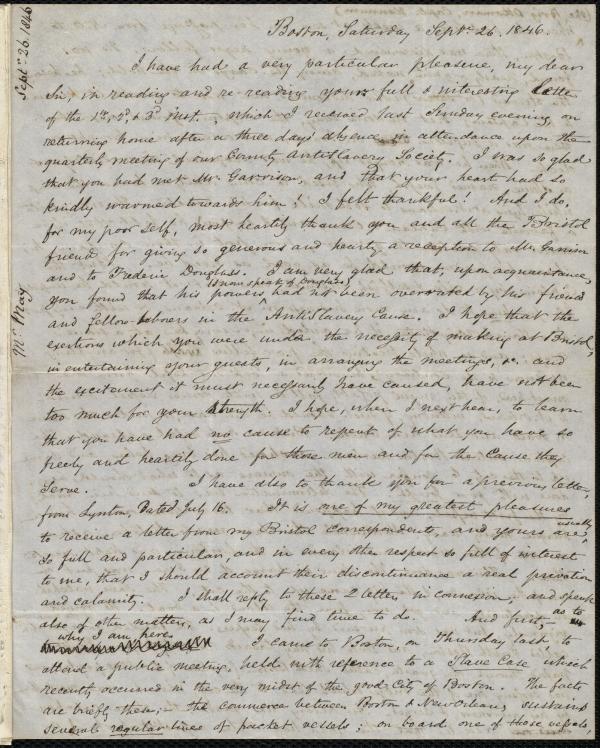 Boston, Saturday Septr. 26. 1846.
I have had a very particular pleasure, my dear
Sir, in reading and re-reading your full & interesting letter
of the 1st, 2d, & 3d inst., which I received last Sunday evening, on
returning home after a three days' absence in attendance upon the
quarterly meeting of our County Antislavery Society. I was so glad
that you had met Mr. Garrison, and that your heart had so
kindly warmed towards him! I felt thankful! And I do,
for my poor self, most heartily thank you and all the Bristol
friends for giving so generous and hearty a reception to Mr. Garrison
and to Frederic Douglass. I am very glad that, upon acquaintance,
you found that his powers (I now speak of Douglass) had not been overrated by his friends
and fellow-laborers in the AntiSlavery Cause. I hope that the
exertions which you were under the necessity of making at Bristol,
in entertaining your guests, in arranging the meetings, &c. and
the excitement it must necessarily have caused, have not been
too much for your strength. I hope, when I next hear, to learn
that you have had no cause to repent of what you have so
freely and heartily done for those men and for the Cause they
serve. I have also to thank you for a previous letter,
from Lynton, dated July 16. It is one of my greatest pleasures
to receive a letter from my Bristol correspondents, and yours are usually,
so full and particular, and in every other respect so full of interest
to me, that I should account their discontinuance a real privation
and calamity. I shall reply to these 2 letters in connexion, and speak
also of other matters, as I may find time to do. And first, as to
why I am here. I came to Boston, on Thursday last, to
attend a public meeting, held with reference to a Slave Case which
recently occurred in the very midst of the good City of Boston. The facts
are briefly these;— the commerce between Boston & New Orleans, sustains
several regular lines of packet vessels; on board one of those vessels,
Septr. 26. 1846
Mr May